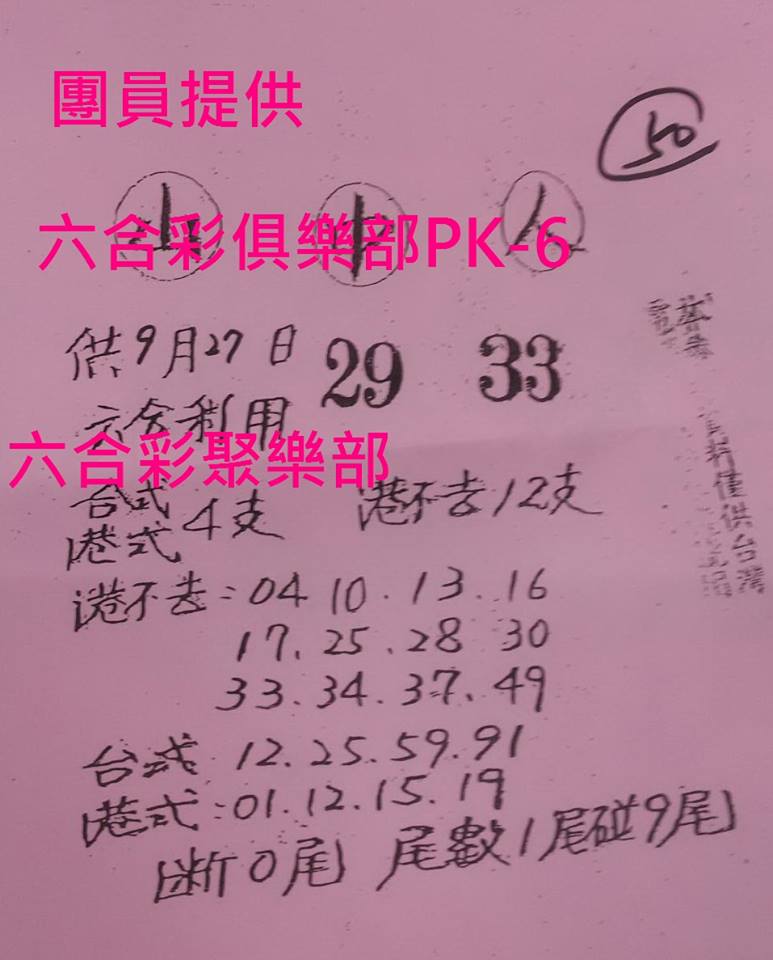 團員提供
50
山 中 人
六合彩俱樂部PK-6
供9月27日 29 33
六合利用
六合彩聚樂部
台式
港式 4支 港不去12支
港不去:04 10.13.16
17.25.28 30
33.34.37.49
台式 12.25.59.91
港式:01.12.15.19
断0尾 尾數1尾碰9尾
料僅供台灣